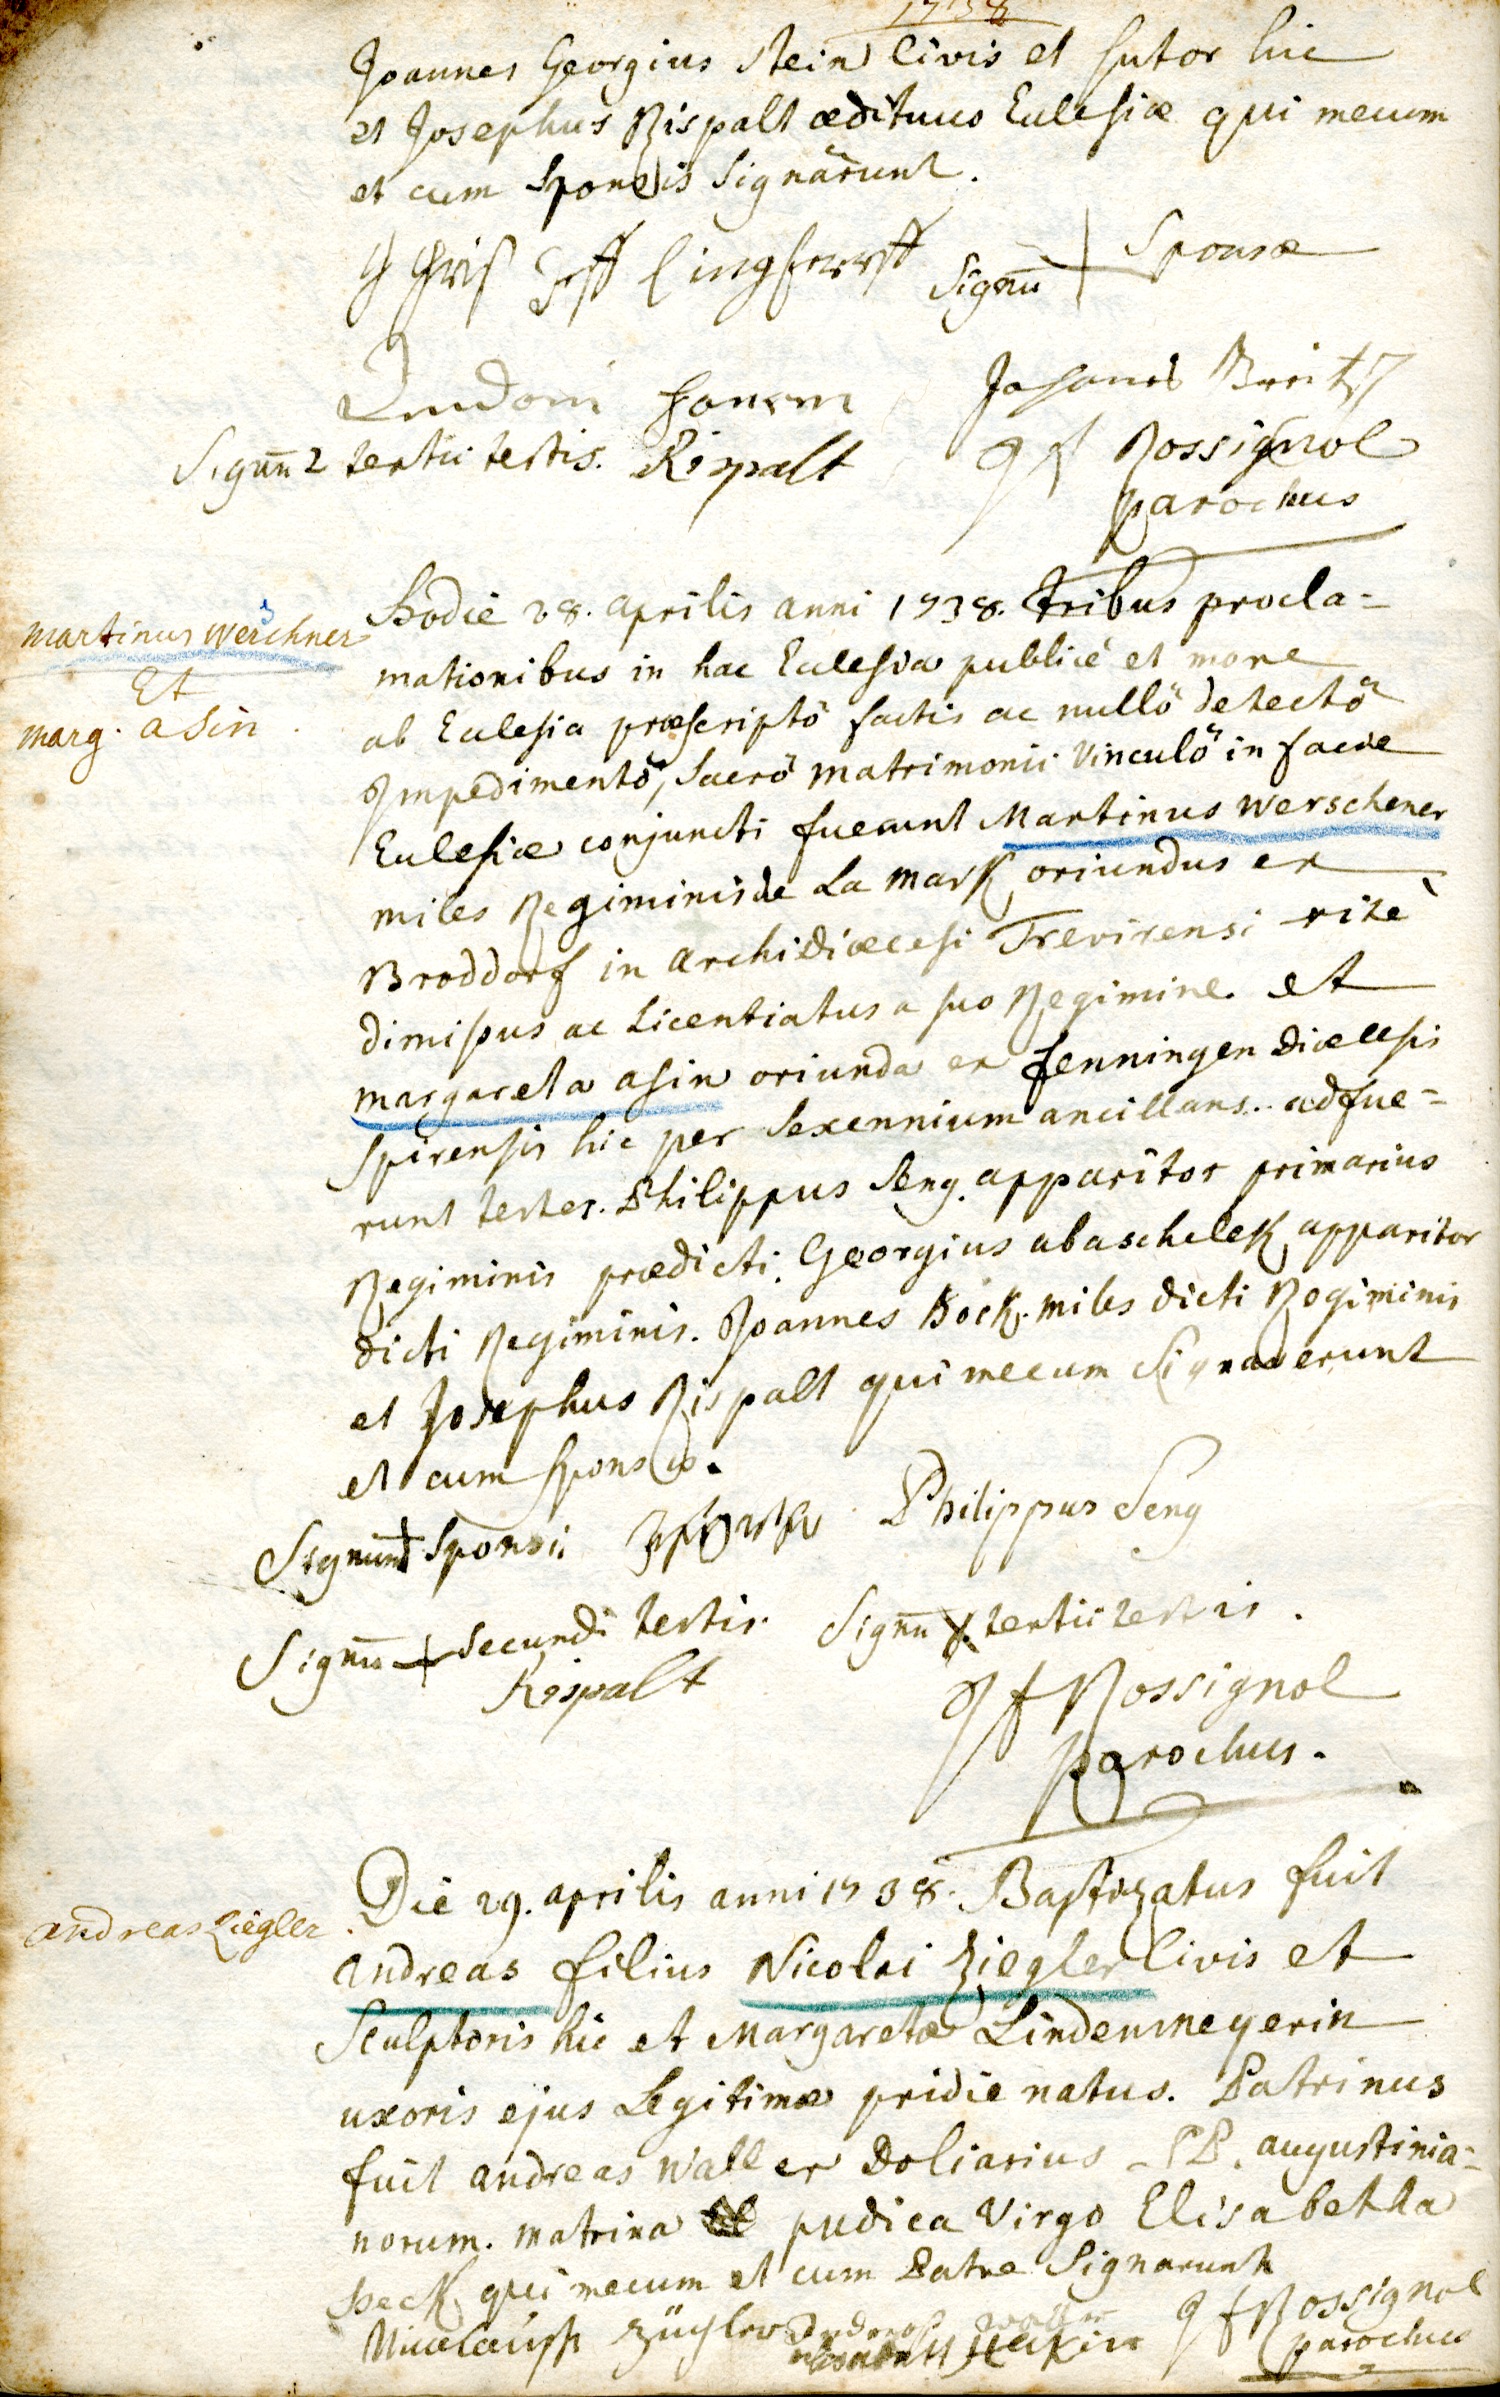 1738
Joannes Georgius Stein Civis et sutor hic
et Josephus Rispalt ædituus Eclesiæ qui mecum
et cum Sponsis signârunt.
Signū Sponsæ
Signū 2 tertii testis. Rispalt Rossignol
parochus
Martinus Werschner
Et
marg. asin
Hodie 28. aprilis anni 1738. tribus procla-
mationibus in hac Eclesia publicè et more
ab Eclesia præscriptô factis ac nullô detectô
Impedimentô, sacrô matrimonii vinculô in facie
Eclesiæ conjuncti fuerunt Martinus Werschener
miles Regiminis de La Mark oriundus ex
Broddorf in archidiœcesi Trevirensi ritè
dimissus ac Licentiatus a suo Regimine. et
margareta asin oriunda ex fenningen diœcesis
spirensis hic per sexennium ancillans. adfue-
runt testes. Philippus Seng apparitor primarius
Regiminis prædicti. Georgius abaschelek apparitor
dicti Regiminis. Joannes Bock. miles dicti Regiminis
et Josephus Rispalt qui mecum signaverunt
et cum sponso.
Signum Sponsi Philippus Seng
Signū secundi testis. Signū tertii testis.
Rispalt J f Rossignol
parochus.
andreas Ziegler
Die 29. aprilis anni 1738. Baptizatus fuit
andreas filius Nicolai Ziegler Civis et
Sculptoris hic et Margaretæ Lindenmeyerin
uxoris ejus Legitimæ pridie natus. Patrinus
fuit andreas Waller Doliarius PP. augustinia-
norum. matrina pudica Virgo Elisabetha
Heck qui mecum et cum Patre signarunt
J f Rossignol
parochus